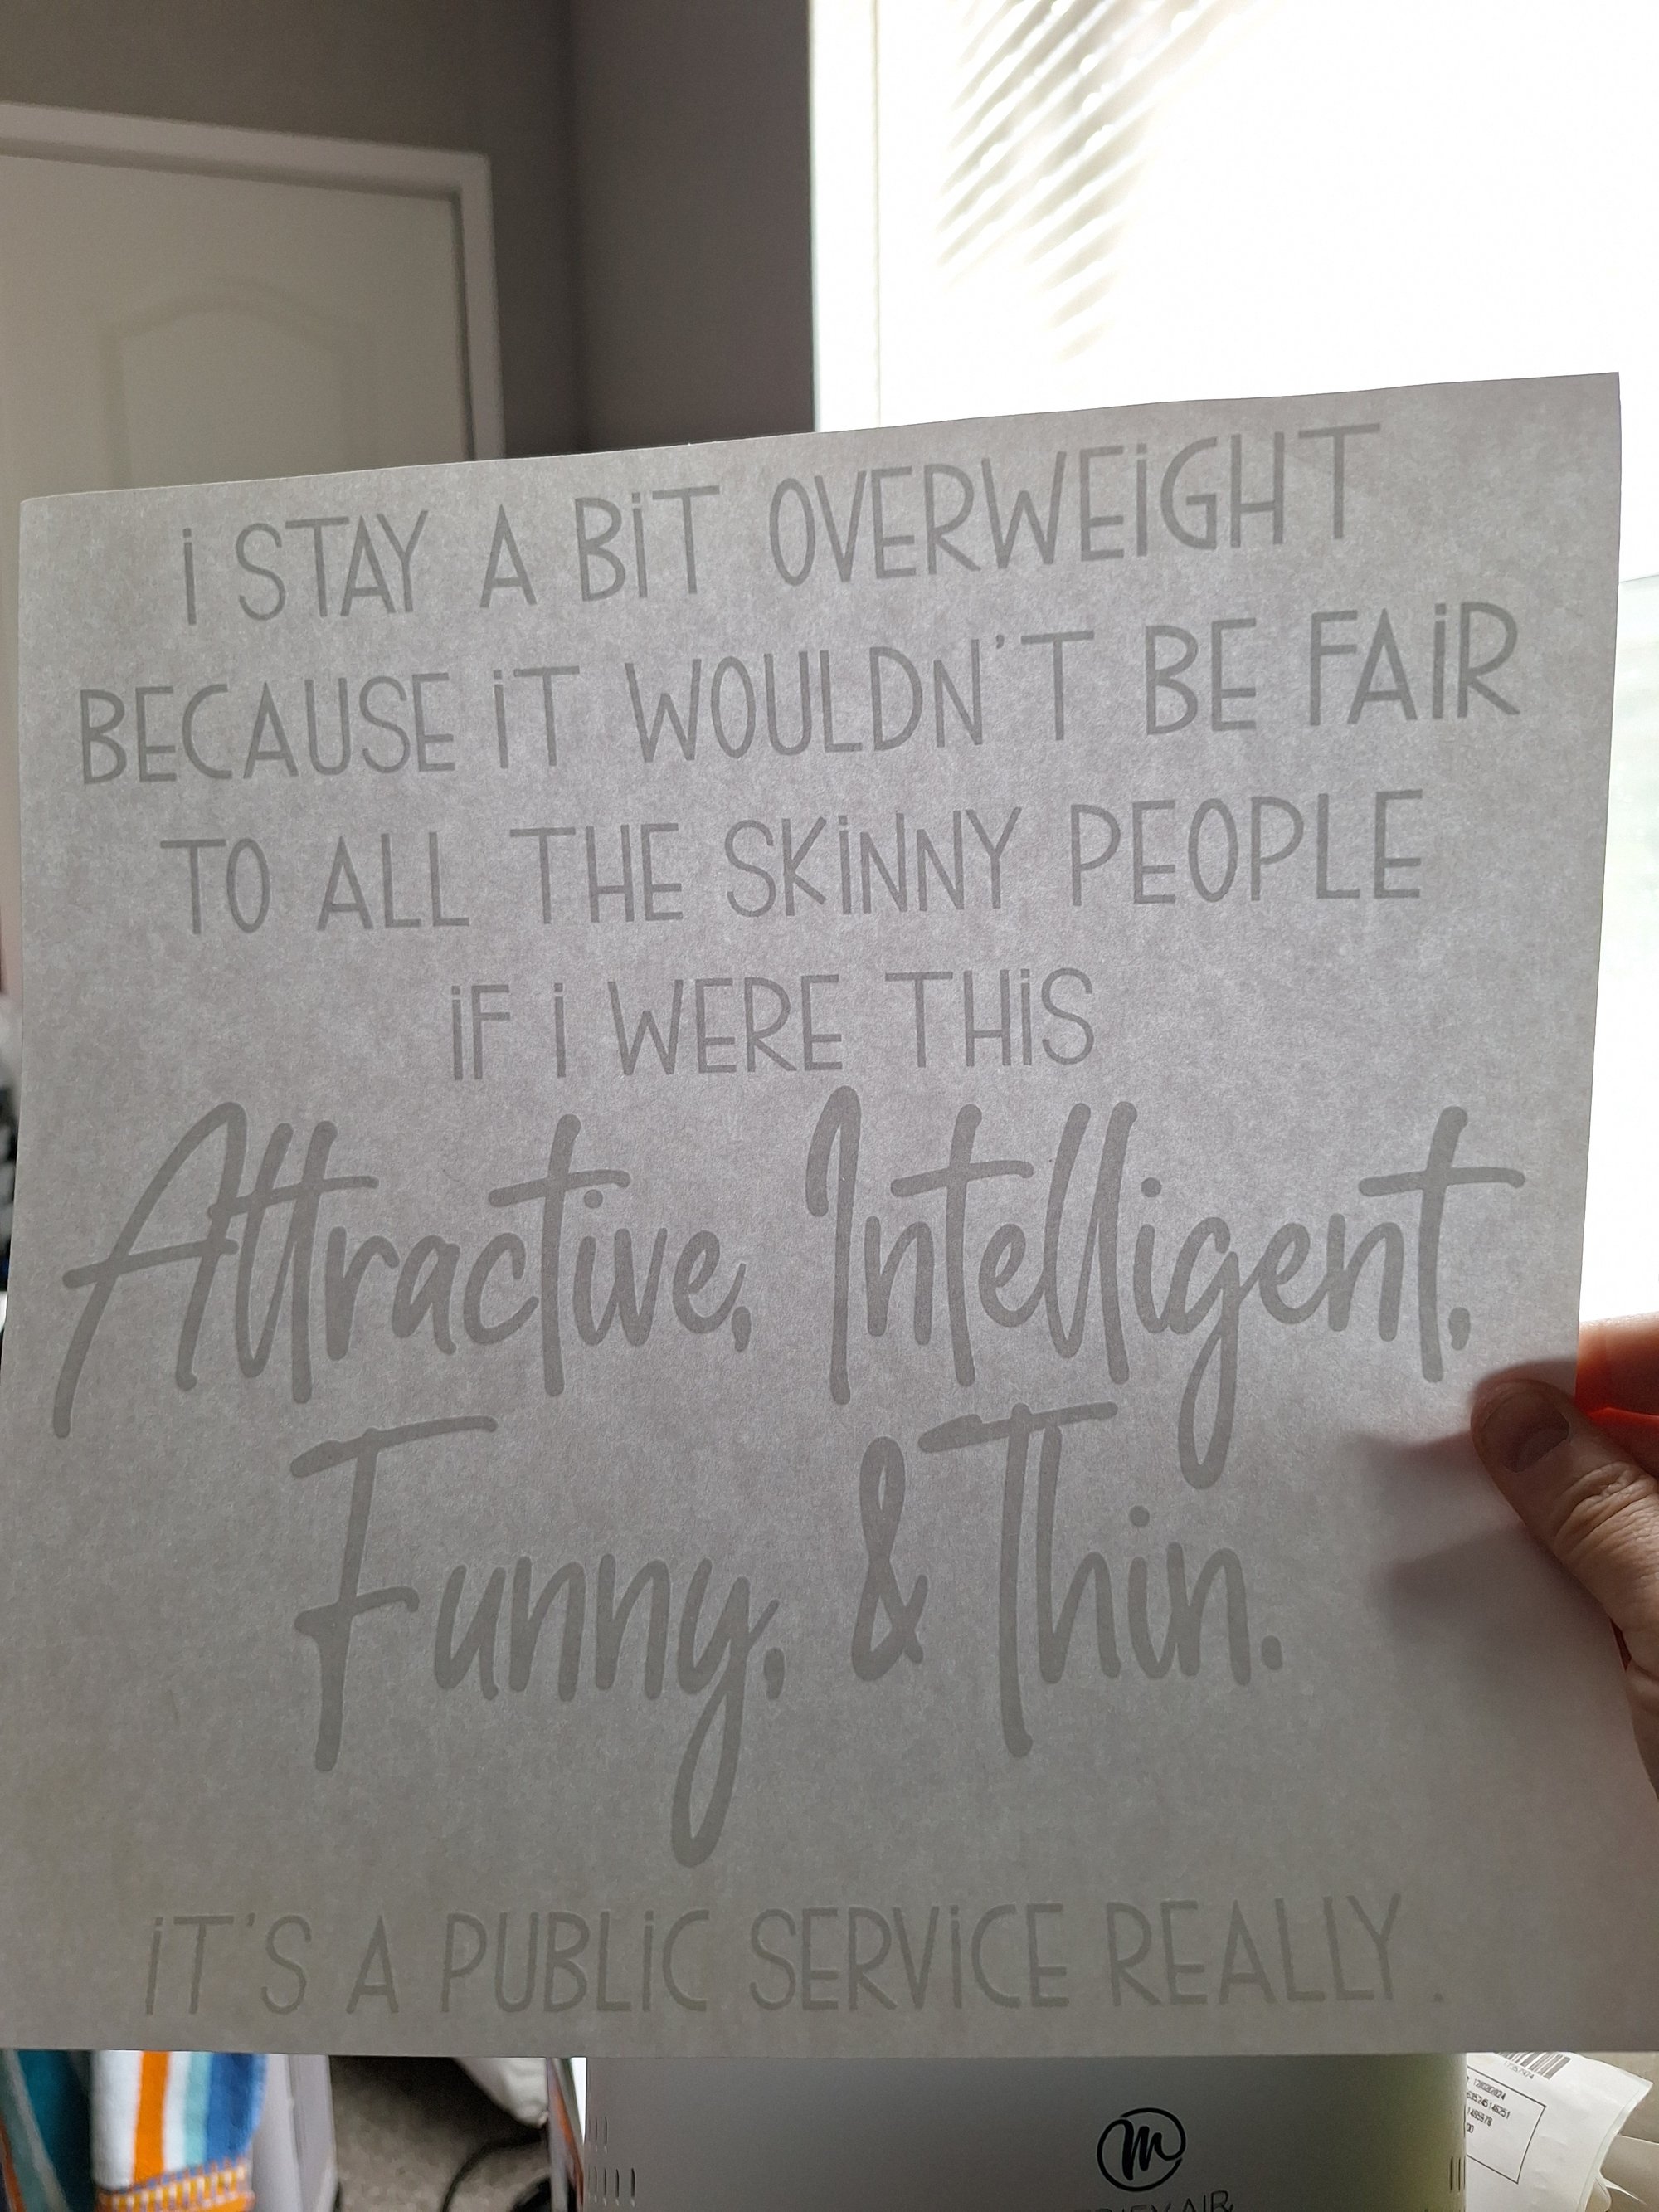 i STAY A BiT OVERWEiGHT
BECAUSE iT WOULDN'T BE FAiR
TO ALL THE SKiNNY PEOPLE
iF i WERE THiS
Attractive, Intelligent,
Funny, & Thin.
iT'S A PUBLiC SERViCE REALLY.
m